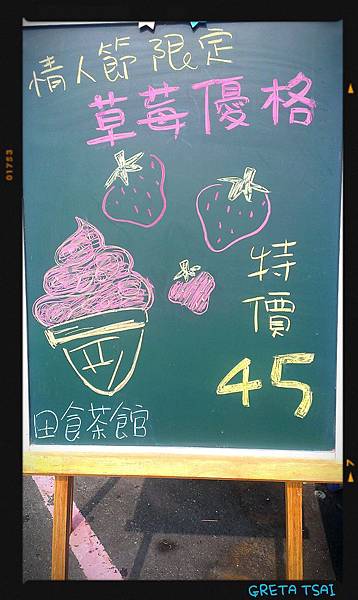 情人節限定
草莓優格
特
價
45
田食茶館
01753
7
GRETA TSAI